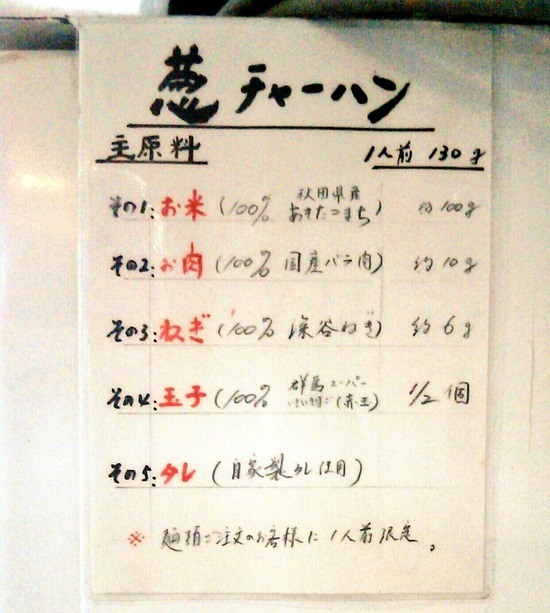 葱チャーハン
主原料 1人前 130g
その1:お米(100% 秋田県産あきたこまち) 約100g
その2:お肉(100% 国産バラ肉) 約10g
その3:ねぎ(100% 深谷ねぎ) 約6g
その4:玉子(100% 群馬 (赤玉) 1/2個
その5:タレ(自家製タレ使用)
※ 麺類ご注文のお客様に1人前限定。